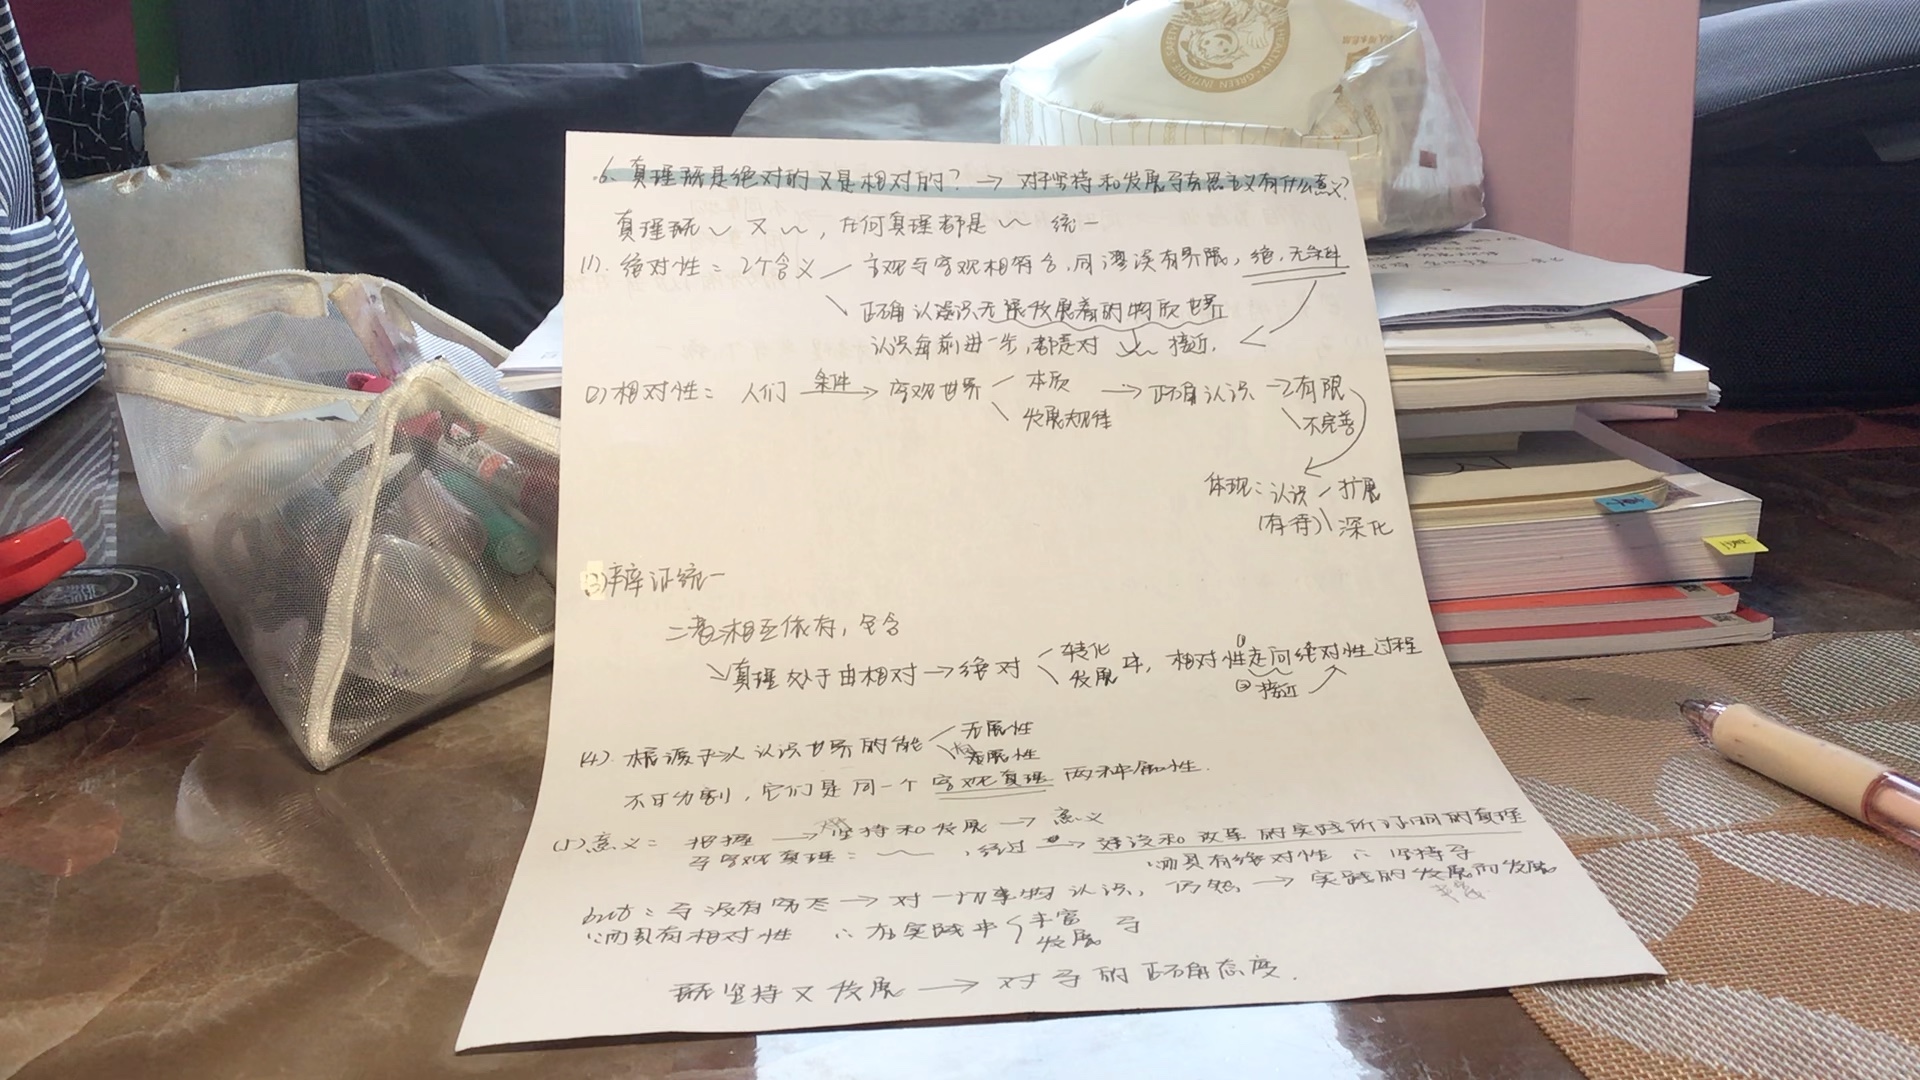 6. 真理既是绝对的又是相对的? → 对于坚持和发展马克思主义有什么意义?
真理既～又～, 任何真理都是～统一
(1). 绝对性: 2个含义 主观与客观相符合, 同谬误有界限, 绝. 无条件
正确认识无限发展着的物质世界
认识每前进一步, 都是对～接近.
(2) 相对性: 人们 条件→ 客观世界 本质 发展规律 → 正确认识 → 有限 不完善
体现: 认识 扩展
(有待) 深化
(3) 辩证统一
二者相互依存, 包含
真理处于由相对→绝对 转化 发展 中, 相对性①走向绝对性过程
②接近
(4). 根源于人认识世界的能 无限性
发展性
不可分割, 它们是同一个客观真理两种属性.
(5) 意义: 把握 → 坚持和发展 → 意义
马客观真理: ～, 经过 → 建设和改革的实践所证明的真理
∵而具有绝对性 ∴ 坚持马
but: 马没有穷尽 → 对一切事物认识, 仍然 → 实践的发展而发展
∵而具有相对性 ∴ 在实践中 丰富 发展 马
既坚持又发展 → 对马的正确态度.
HEALTHY · GREEN INITIATIVE · SAFETY